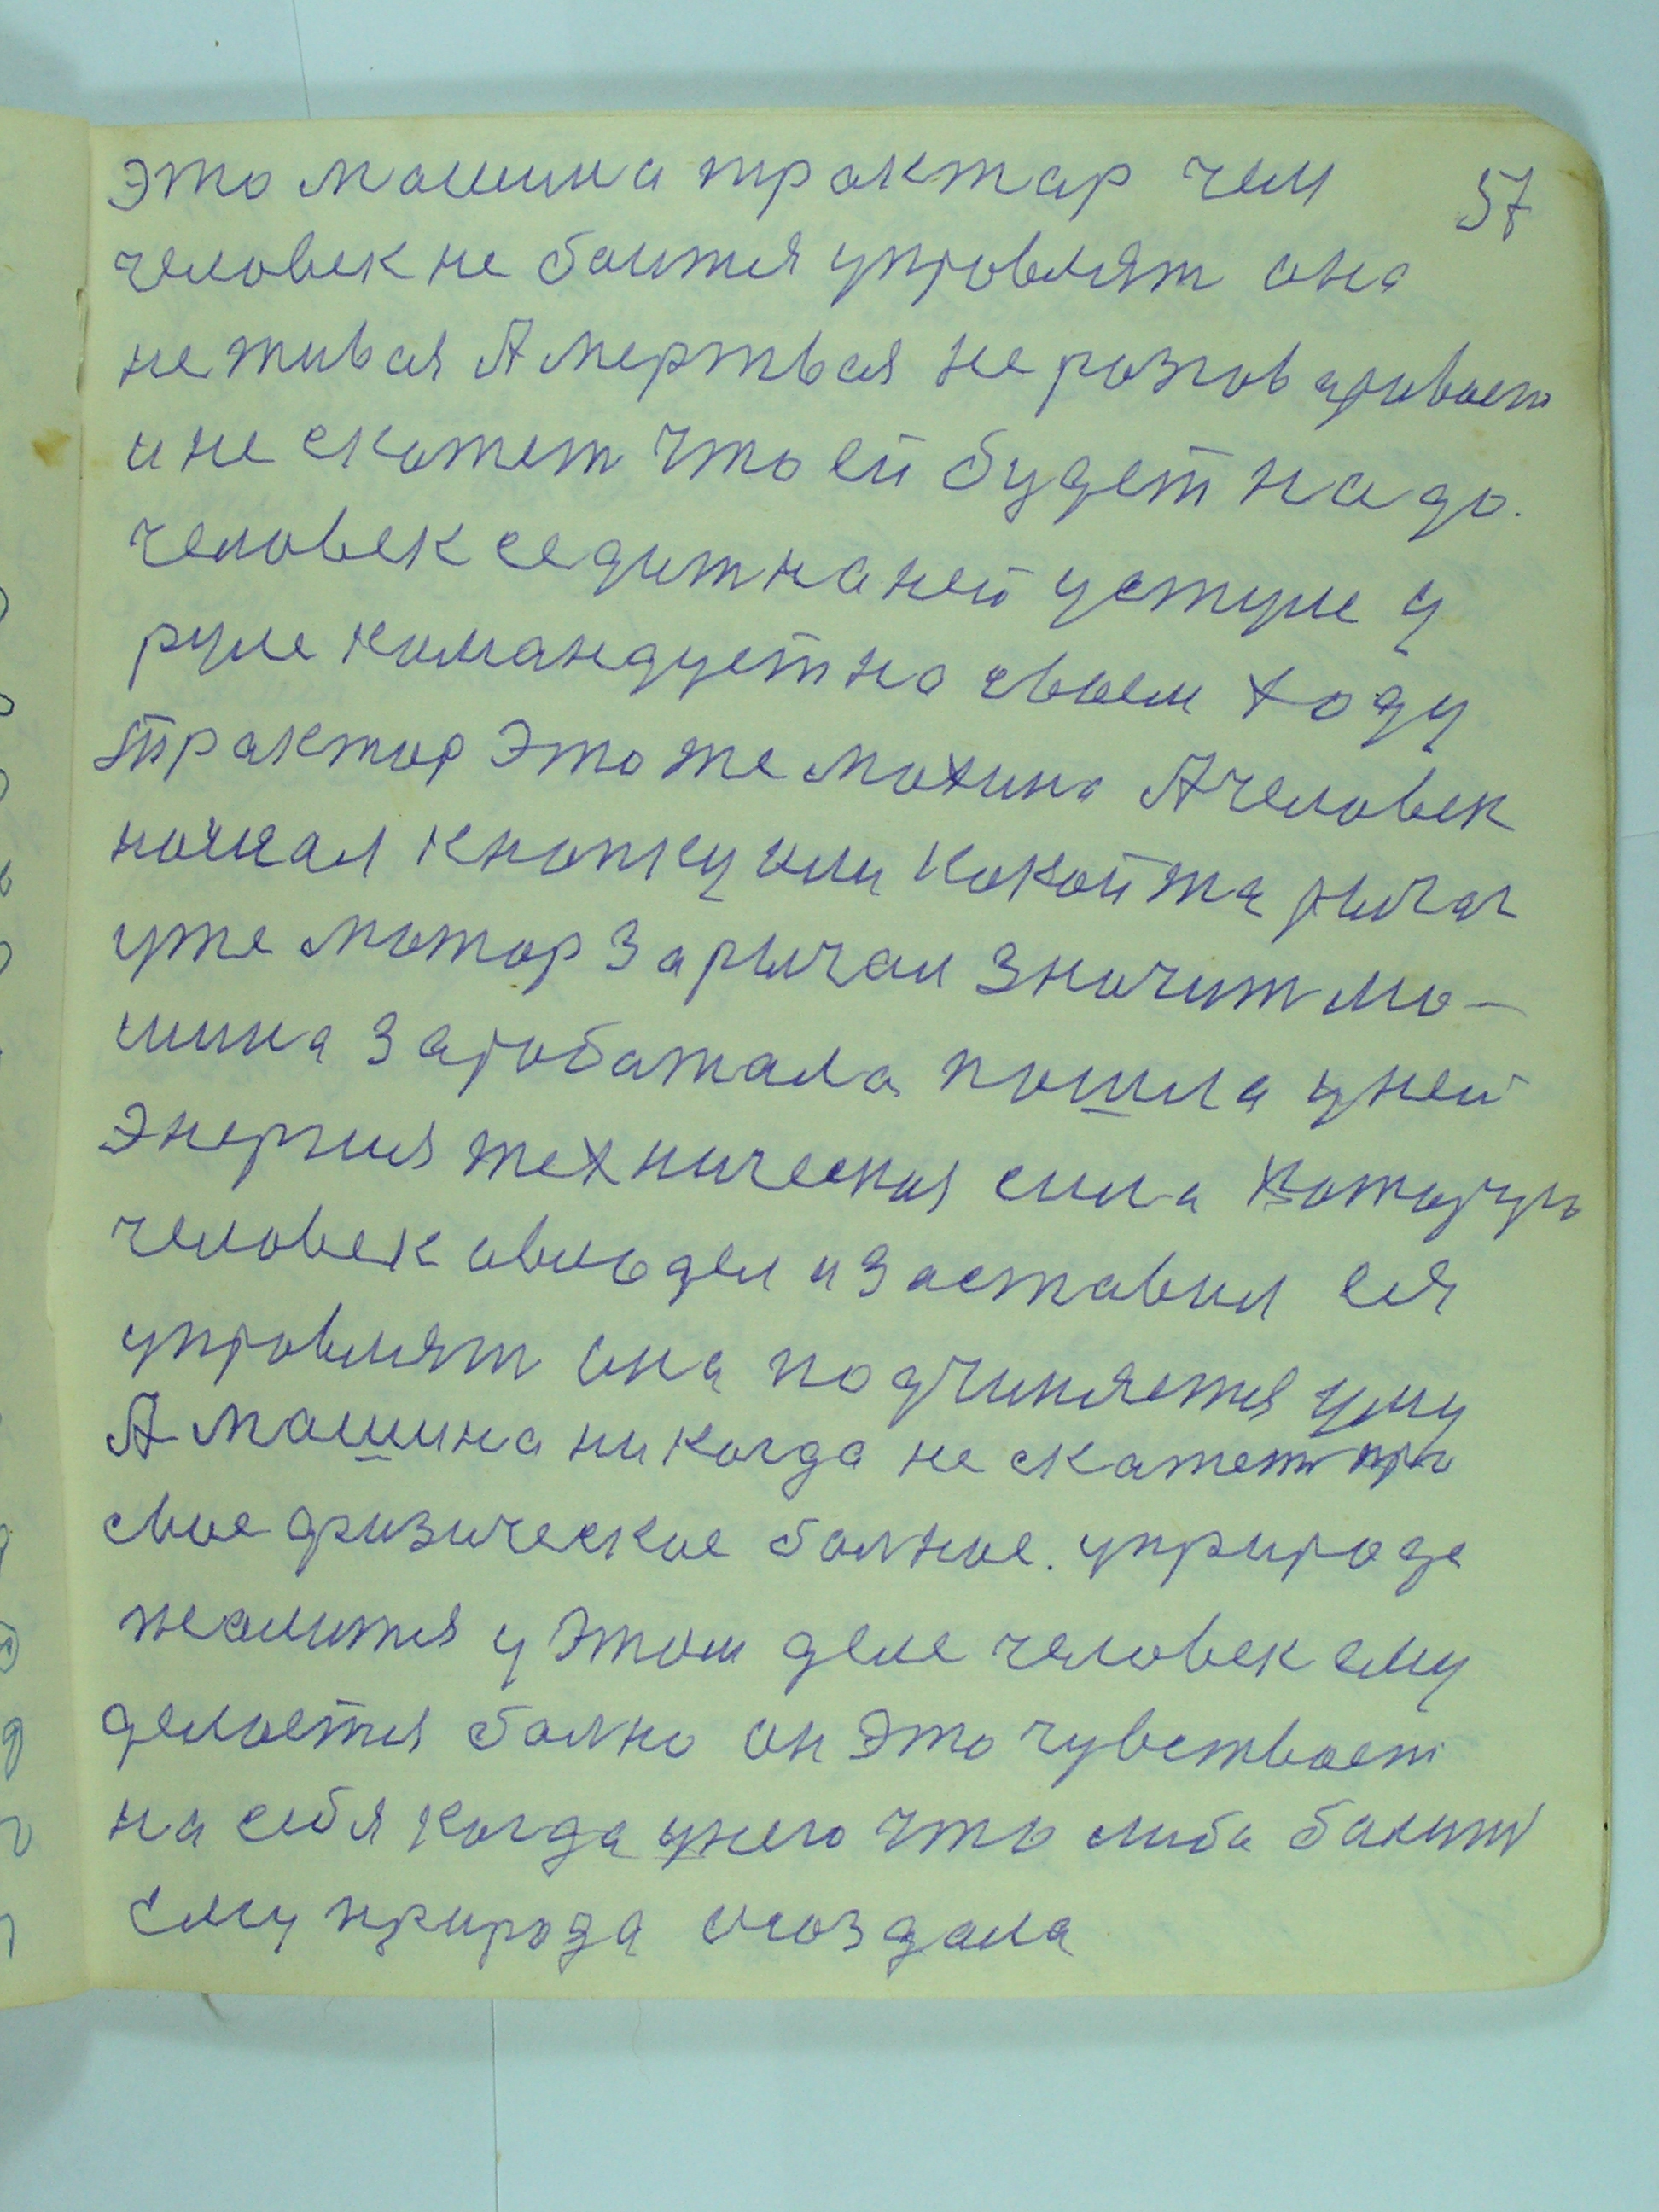 это машина трактар чем 57
человек не боится управлят она
не живая А мертвая не разговаривает
и не скажет что ей будет надо.
человек седит на ней устуле у
руле командует на своем ходу
трактор это же махина А человек
нажал кнопку или какой та рычаг
уже мотор зарычал значит ма-
шина заработала пошла у ней
энергия техническая сила которую
человек овладел и заставил ея
управлят она подчиняется уму
А машина никогда не скажет про
свое физическое болное. у природе
жалится у этом деле человек ему
делается болно он это чувствует
на себя когда у него что либа балит
ему природа создала